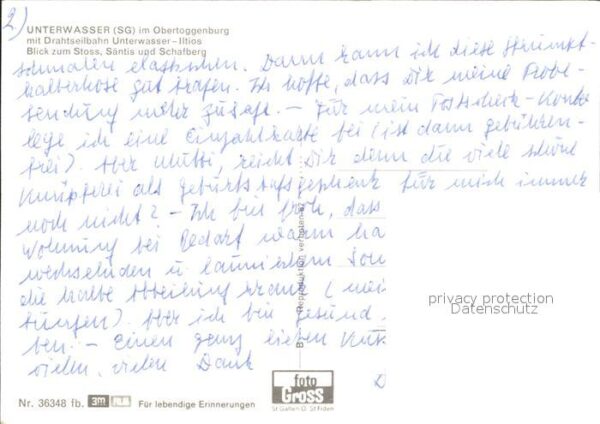 2)
UNTERWASSER (SG) im Obertoggenburg
mit Drahtseilbahn Unterwasser–Iltios
Blick zum Stoss, Säntis und Schafberg
schmalen elastischen. Dann kann ich diese Strumpf-
halterhose gut tragen. Ich hoffe, dass Dir meine Probe-
sendung zusagt. – Für mein Postscheck-Konto
lege ich eine Einzahlkarte bei (ist dann gebühren-
frei). Aber Mutti, reicht Dir denn die viele schöne
Knüpferei als Geburtstagsgeschenk für mich immer
noch nicht? – Ich bin froh, dass
Wohnung bei Bedarf warm ha
u
die halbe Abteilung krank (
). Aber ich bin gesund
ben. – Einen ganz lieben
vielen, vielen Dank
D
B – Reproduktion verboten
privacy protection
Datenschutz
Nr. 36348 fb. 3m Für lebendige Erinnerungen
foto
Gross
St Gallen O. St Fiden